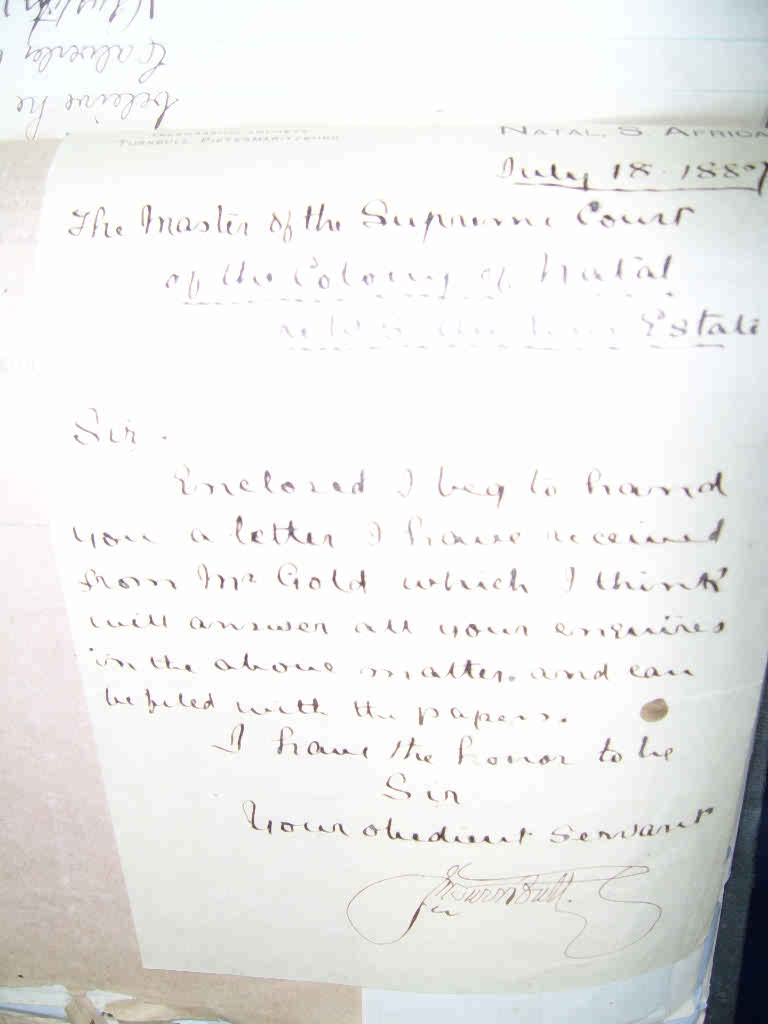 believe he
Calverley
TURNBULL PIETERMARITZBURG
NATAL, S. AFRICA
July 18. 1887
The Master of the Supreme Court
of the Colony of Natal
Estate
Sir.
Enclosed I beg to hand
you a letter I have received
from Mr Gold which I think
will answer all your enquires
in the above matter. and can
be filed with the papers.
I have the honor to be
Sir
Your obedient Servant
Turnbull.